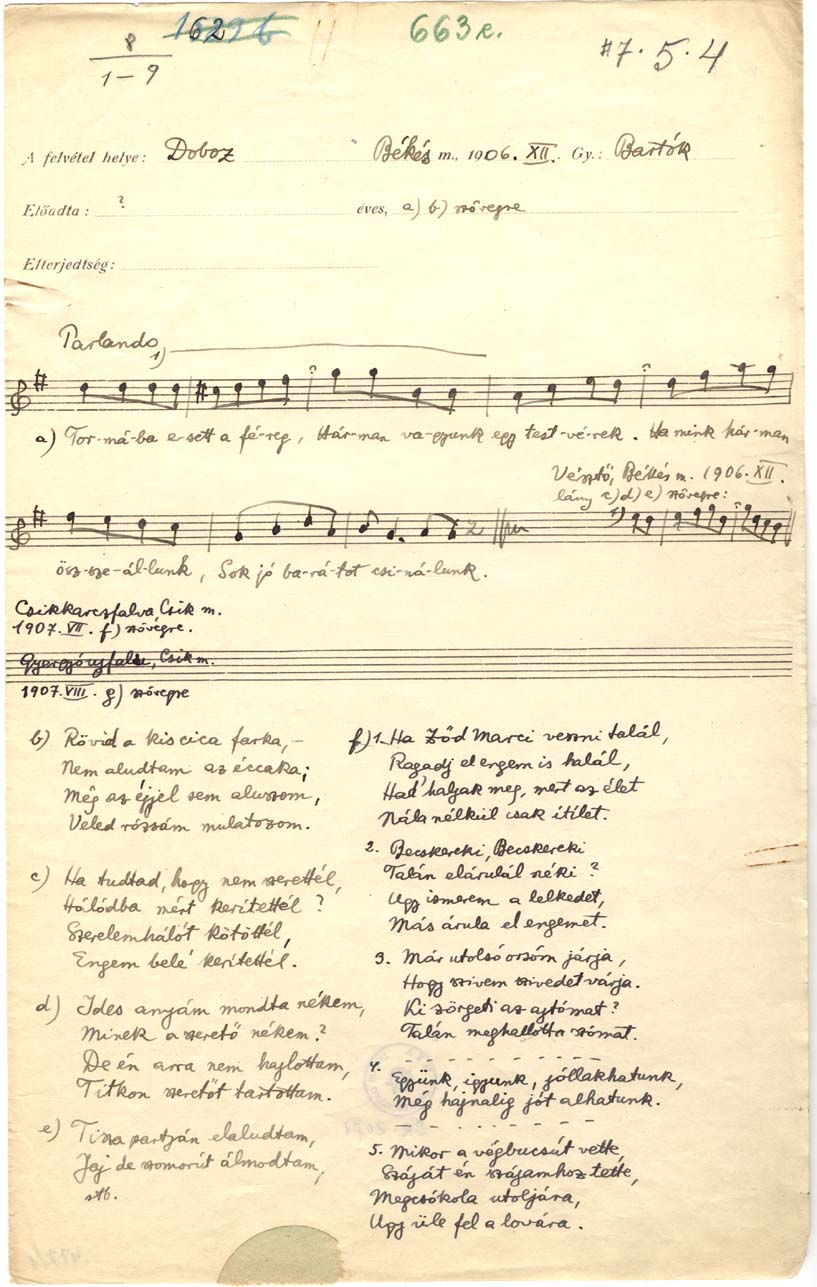 8
1–9
1629 b
663 e.
#7·5·4
A felvétel helye: Doboz Békés m., 1906. XII. Gy.: Bartók
Előadta: ? éves, a) b) szövegre
Elterjedtség:
Parlando
1)
a) Tor-má-ba e-sett a fé-reg, Hár-man va-gyunk egy test-vé-rek. Ha mink hár-man
Vésztő, Békés m. 1906. XII.
lány c) d) e) szövegre:
1)
ösz-sze-ál-lunk, Sok jó ba-rá-tot csi-ná-lunk.
Csikkarcsfalva, Csik m.
1907. VII. f) szövegre.
Gyergyóujfalu, Csik m.
1907. VIII. g) szövegre
b) Rövid a kis cica farka, –
Nem aludtam az éccaka;
Még az éjjel sem aluszom,
Veled rózsám mulatozom.
c) Ha tudtad, hogy nem szerettél,
Hálódba mért kerítettél?
Szerelemhálót kötöttél,
Engem belé kerítettél.
d) Ides anyám mondta nékem,
Minek a szerető nékem?
De én arra nem hajlottam,
Titkon szeretőt tartottam.
e) Tisza partján elaludtam,
Jaj de szomorút álmodtam,
stb.
f) 1. Ha Zöd Marci veszni talál,
Ragadj el engem is halál,
Had' haljak meg, mert az élet
Nála nélkül csak itílet.
2. Becskereki, Becskereki
Talán elárulál néki?
Ugy ismerem a lelkedet,
Más árula el engemet.
3. Már utolsó orsóm járja,
Hogy szivem szivedet várja.
Ki zörgeti az ajtómat?
Talán meghallotta szómat.
4. – – – – – – – – –
Együnk, igyunk, jóllakhatunk,
Még hajnalig jót alhatunk.
– – – – – – – – –
5. Mikor a végbucsút vette,
Száját én szájamhoz tette,
Megcsókola utoljára,
Ugy üle fel a lovára.